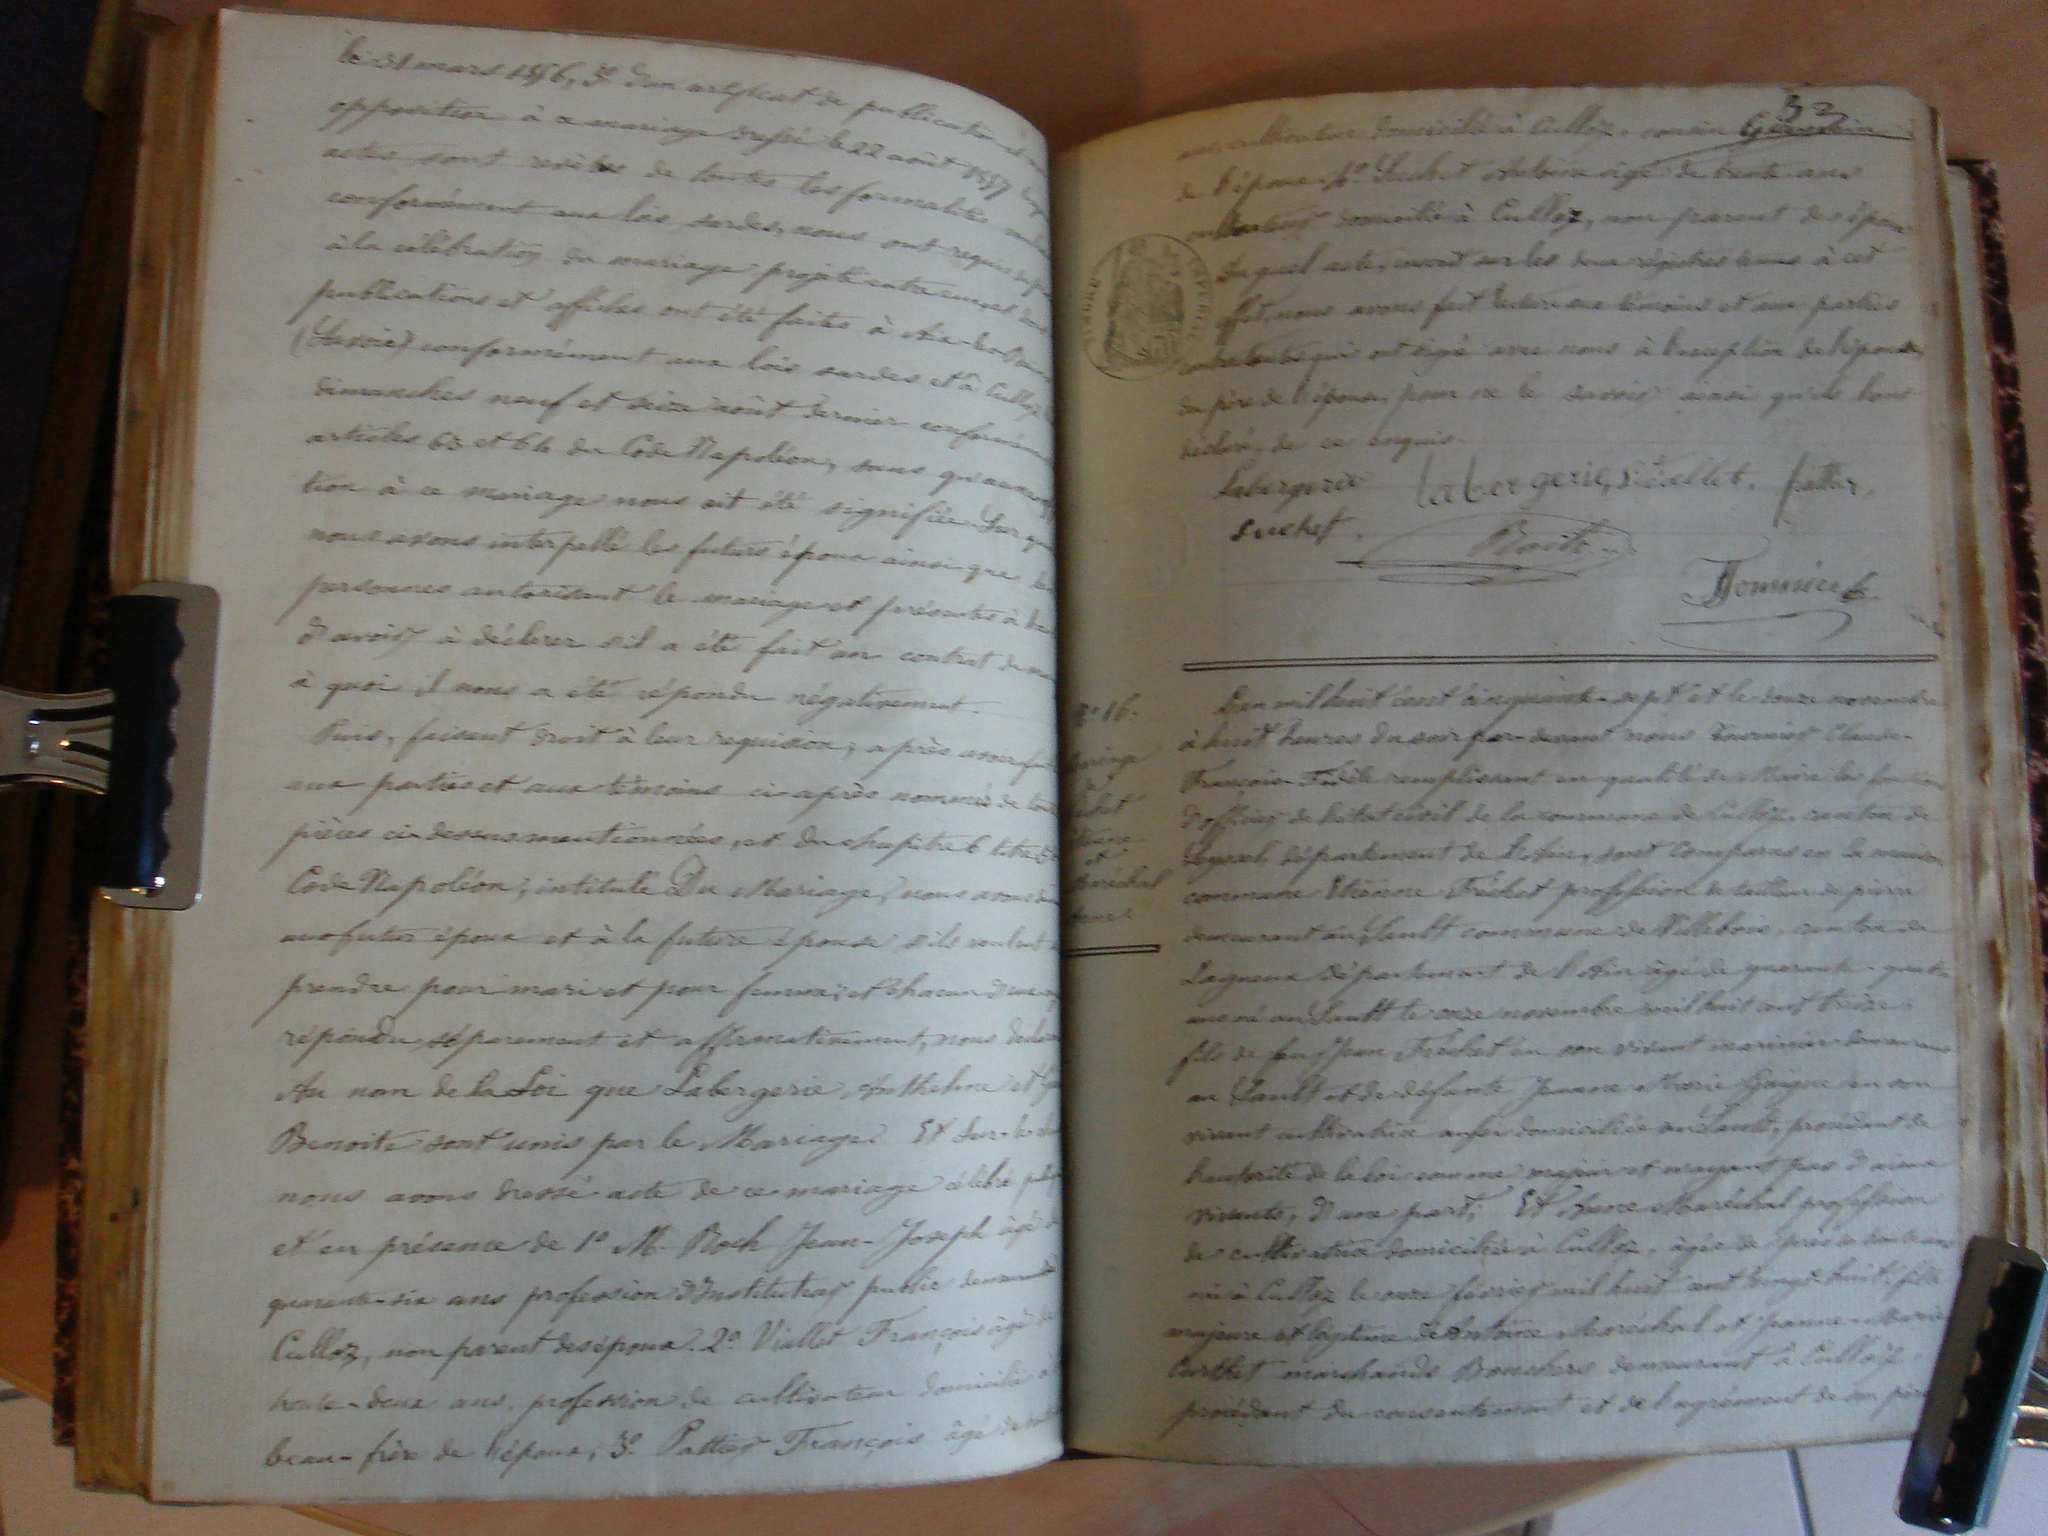 le 31 mars 1856, 3º d'un certificat de publication et
opposition à ce mariage dressé le 22 août 1857
actes sont revêtus de toutes les formalités
conformément aux lois sardes, nous ont requis de
à la célébration du mariage projeté entre eux
publications et affiches ont été faites à Aix-les-B
(Savoie) conformément aux lois sardes et à Culloz
dimanches neuf et seize août dernier conformém
articles 63 et 64 du Code Napoléon, sans qu'aucune opp
tion à ce mariage nous ait été signifiée. Sur quoi
nous avons interpellé les futurs époux ainsi que les
personnes autorisant le mariage et présentes à
d'avoir à déclarer s'il a été fait un contrat de ma
à quoi il nous a été répondu négativement.
Puis, faisant droit à leur requision, après avoir fait
aux parties et aux témoins ci-après nommés de toutes
pièces ci-dessus mentionnées, et du chapitre 6 titre
Code Napoléon, intitulé Du Mariage, nous avons
au futur époux et à la future épouse s'ils veulent
prendre pour mari et pour femme; et chacun d'eux
répondu séparement et affirmativement, nous déclarons
Au nom de la Loi que Labergerie Anthelme et
Benoite sont unis par le Mariage. Et sur-le-cha
nous avons dressé acte de ce mariage célébré
et en présence de 1º M. Roch Jean-Joseph âgé de
quarante-six ans profession d'Instituteur public demeurant à
Culloz, non parent des époux. 2º Viallet François âgé de
trente-deux ans, profession de cultivateur domicilié à
beau-frère de l'époux, 3º Pattier François âgé de
33
ans, cultivateur domicilié à Culloz, cousin Germain
de l'épouse. 4º Suchet Antoine âgé de trente ans
cultivateur domicilié à Culloz, non parent des époux
Du quel acte, inscrit sur les deux régistres tenus à cet
effet, nous avons fait lecture aux témoins et aux parties
contractantes qui ont signé avec nous à l'exception de l'épouse
du père de l'épouse, pour ne le savoir ainsi qu'ils l'ont
déclaré, de ce enquis.
Labergerie labergerie, Viallet. pattier,
suchet. Roch
TIMBRE IMPERIAL
Nº 16.
Mariage
de
Fréchet
Etienne
et
Maréchal
L'an mil huit cent cinquante-sept et le douze novembre
à huit heures du soir par-devant nous Tournier Claude-
François-Fidèle remplissant en qualité de Maire les fonctions
d'officier de l'état civil de la commune de Culloz, canton de
Seyssel département de l'Ain, sont comparus en la maison
commune Etienne Fréchet profession de tailleur de pierre
demeurant au Sault commune de Villebois, canton de
Lagnieu département de l'Ain âgé de quarante-quatre
ans né au Sault le onze novembre mil huit cent treize,
fils de feu Jean Fréchet en son vivant marinier demeurant
au Sault et de défunte Jeanne Marie en son
vivant cultivatrice domiciliée au Sault, procédant de
l'autorité de la loi comme majeur et n'ayant pas d'aïeux
vivants, d'une part; Et Maréchal profession
de cultivatrice domiciliée à Culloz, âgée de près de trente ans
née à Culloz le onze février mil huit cent vingt-huit, fille
majeure et légitime de Antoine Maréchal et Jeanne-Marie
Curthet marchands Bouchers demeurant à Culloz,
procédant du consentement et de l'agrément de son père